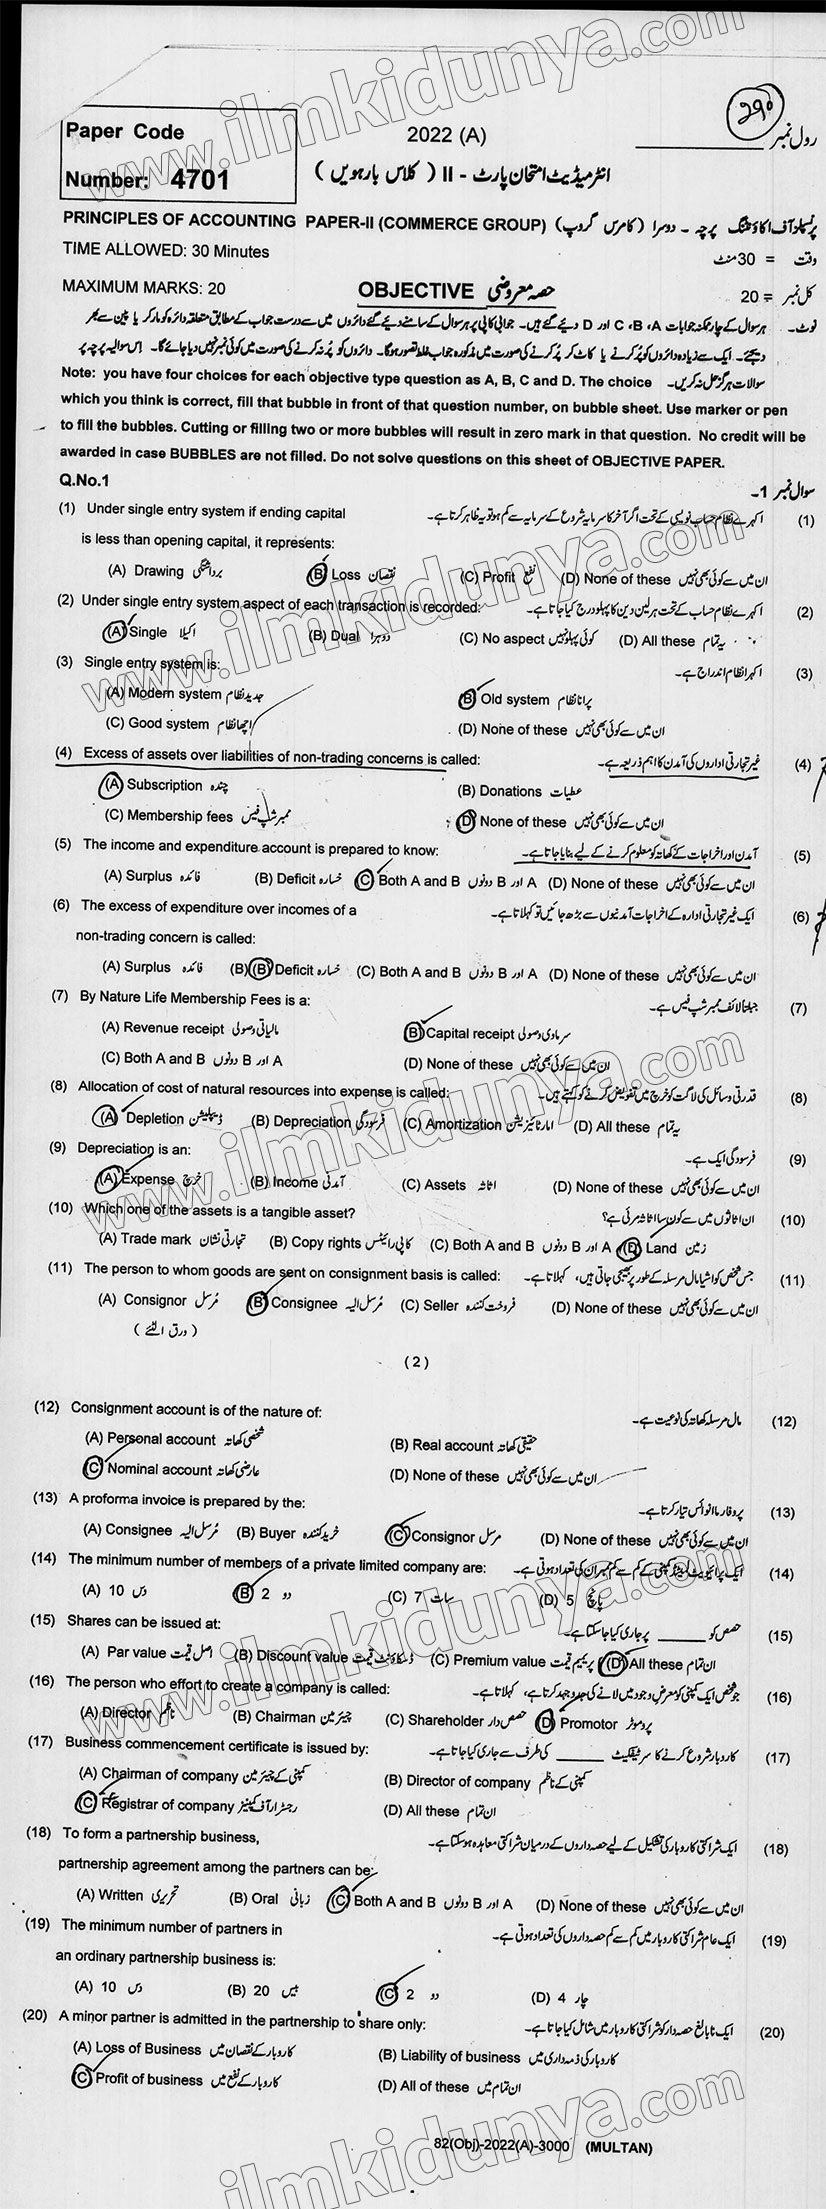 290
Paper Code
Number: 4701
2022 (A)
رول نمبر
انٹرمیڈیٹ امتحان پارٹ - II ( کلاس بارہویں )
PRINCIPLES OF ACCOUNTING PAPER-II (COMMERCE GROUP) پرنسپلز آف اکاؤنٹنگ پرچہ - دوسرا (کامرس گروپ)
TIME ALLOWED: 30 Minutes وقت = 30 منٹ
MAXIMUM MARKS: 20 OBJECTIVE حصہ معروضی کل نمبر = 20
نوٹ۔ ہر سوال کے چار ممکنہ جوابات C ،B ،A اور D دیئے گئے ہیں۔ جوابی کاپی پر ہر سوال کے سامنے دیئے گئے دائروں میں سے درست جواب کے مطابق متعلقہ دائرہ کو مارکر یا پین سے بھر
دیجئے۔ ایک سے زیادہ دائروں کو پُر کرنے یا کاٹ کر پُر کرنے کی صورت میں مذکورہ جواب غلط تصور ہوگا۔ دائروں کو پُر نہ کرنے کی صورت میں کوئی نمبر نہیں دیا جائے گا۔ اس سوالیہ پرچہ پر
سوالات ہرگز حل نہ کریں۔ Note: you have four choices for each objective type question as A, B, C and D. The choice
which you think is correct, fill that bubble in front of that question number, on bubble sheet. Use marker or pen
to fill the bubbles. Cutting or filling two or more bubbles will result in zero mark in that question. No credit will be
awarded in case BUBBLES are not filled. Do not solve questions on this sheet of OBJECTIVE PAPER.
Q.No.1 سوال نمبر 1۔
(1) Under single entry system if ending capital اکہرے نظام حساب نویسی کے تحت اگر آخر کا سرمایہ شروع کے سرمایہ سے کم ہو تو یہ ظاہر کرتا ہے۔ (1)
is less than opening capital, it represents:
(A) Drawing برداشتگی (B) Loss نقصان (C) Profit نفع (D) None of these ان میں سے کوئی بھی نہیں
(2) Under single entry system aspect of each transaction is recorded: اکہرے نظام حساب کے تحت ہر لین دین کا پہلو درج کیا جاتا ہے۔ (2)
(A) Single اکیلا (B) Dual دوہرا (C) No aspect کوئی پہلو نہیں (D) All these یہ تمام
(3) Single entry system is: اکہرا نظام اندراج ہے۔ (3)
(A) Modern system جدید نظام (B) Old system پرانا نظام
(C) Good system اچھا نظام (D) None of these ان میں سے کوئی بھی نہیں
(4) Excess of assets over liabilities of non-trading concerns is called: غیر تجارتی اداروں کی آمدن کا اہم ذریعہ ہے۔ (4)
(A) Subscription چندہ (B) Donations عطیات
(C) Membership fees ممبر شپ فیس (D) None of these ان میں سے کوئی بھی نہیں
(5) The income and expenditure account is prepared to know: آمدن اور اخراجات کے کھاتہ کو معلوم کرنے کے لیے بنایا جاتا ہے۔ (5)
(A) Surplus فائدہ (B) Deficit خسارہ (C) Both A and B دونوں B اور A (D) None of these ان میں سے کوئی بھی نہیں
(6) The excess of expenditure over incomes of a ایک غیر تجارتی ادارہ کے اخراجات آمدنیوں سے بڑھ جائیں تو کہلاتا ہے۔ (6)
non-trading concern is called:
(A) Surplus فائدہ (B) (B) Deficit خسارہ (C) Both A and B دونوں B اور A (D) None of these ان میں سے کوئی بھی نہیں
(7) By Nature Life Membership Fees is a: جبلتا لائف ممبر شپ فیس ہے۔ (7)
(A) Revenue receipt مالیاتی وصولی (B) Capital receipt سرمادی وصولی
(C) Both A and B دونوں B اور A (D) None of these ان میں سے کوئی بھی نہیں
(8) Allocation of cost of natural resources into expense is called: قدرتی وسائل کی لاگت کو خرچ میں تفویض کرنے کو کہتے ہیں۔ (8)
(A) Depletion ڈیپلیشن (B) Depreciation فرسودگی (C) Amortization امارٹائزیشن (D) All these یہ تمام
(9) Depreciation is an: فرسودگی ایک ہے۔ (9)
(A) Expense خرچ (B) Income آمدنی (C) Assets اثاثہ (D) None of these ان میں سے کوئی بھی نہیں
(10) Which one of the assets is a tangible asset? ان اثاثوں میں سے کون سا اثاثہ مرئی ہے؟ (10)
(A) Trade mark تجارتی نشان (B) Copy rights کاپی رائیٹس (C) Both A and B دونوں B اور A (D) Land زمین
(11) The person to whom goods are sent on consignment basis is called: جس شخص کو اشیا مال مرسلہ کے طور پر بھیجی جاتی ہیں، کہلاتا ہے۔ (11)
(A) Consignor مُرسل (B) Consignee مُرسل الیہ (C) Seller فروخت کنندہ (D) None of these ان میں سے کوئی بھی نہیں
( ورق الٹئے )
(2)
(12) Consignment account is of the nature of: مال مرسلہ کھاتہ کی نوعیت ہے۔ (12)
(A) Personal account شخصی کھاتہ (B) Real account حقیقی کھاتہ
(C) Nominal account عارضی کھاتہ (D) None of these ان میں سے کوئی بھی نہیں
(13) A proforma invoice is prepared by the: پروفارما انوائس تیار کرتا ہے۔ (13)
(A) Consignee مُرسل الیہ (B) Buyer خرید کنندہ (C) Consignor مرسل (D) None of these ان میں سے کوئی بھی نہیں
(14) The minimum number of members of a private limited company are: ایک پرائیویٹ لمیٹڈ کمپنی کے کم سے کم ممبران کی تعداد ہوتی ہے۔ (14)
(A) 10 دس (B) 2 دو (C) 7 سات (D) 5 پانچ
(15) Shares can be issued at: حصص کو ______ پر جاری کیا جا سکتا ہے۔ (15)
(A) Par value اصل قیمت (B) Discount value ڈسکاؤنٹ قیمت (C) Premium value پریمیم قیمت (D) All these ان تمام
(16) The person who effort to create a company is called: جو شخص ایک کمپنی کو معرض وجود میں لانے کی جدوجہد کرتا ہے، کہلاتا ہے۔ (16)
(A) Director ناظم (B) Chairman چیئرمین (C) Shareholder حصص دار (D) Promotor پروموٹر
(17) Business commencement certificate is issued by: کاروبار شروع کرنے کا سرٹیفکیٹ ______ کی طرف سے جاری کیا جاتا ہے۔ (17)
(A) Chairman of company کمپنی کے چیئرمین (B) Director of company کمپنی کے ناظم
(C) Registrar of company رجسٹرار آف کمپنیز (D) All these ان تمام
(18) To form a partnership business, ایک شراکتی کاروبار کی تشکیل کے لیے حصہ داروں کے درمیان شراکتی معاہدہ ہو سکتا ہے۔ (18)
partnership agreement among the partners can be:
(A) Written تحریری (B) Oral زبانی (C) Both A and B دونوں B اور A (D) None of these ان میں سے کوئی بھی نہیں
(19) The minimum number of partners in ایک عام شراکتی کاروبار میں کم سے کم حصہ داروں کی تعداد ہوتی ہے۔ (19)
an ordinary partnership business is:
(A) 10 دس (B) 20 بیس (C) 2 دو (D) 4 چار
(20) A minor partner is admitted in the partnership to share only: ایک نابالغ حصہ دار کو شراکتی کاروبار میں شامل کیا جاتا ہے۔ (20)
(A) Loss of Business کاروبار کے نقصان میں (B) Liability of business کاروبار کی ذمہ داری میں
(C) Profit of business کاروبار کے نفع میں (D) All of these ان تمام میں
82(Obj)-2022(A)-3000 (MULTAN)
www.ilmkidunya.com